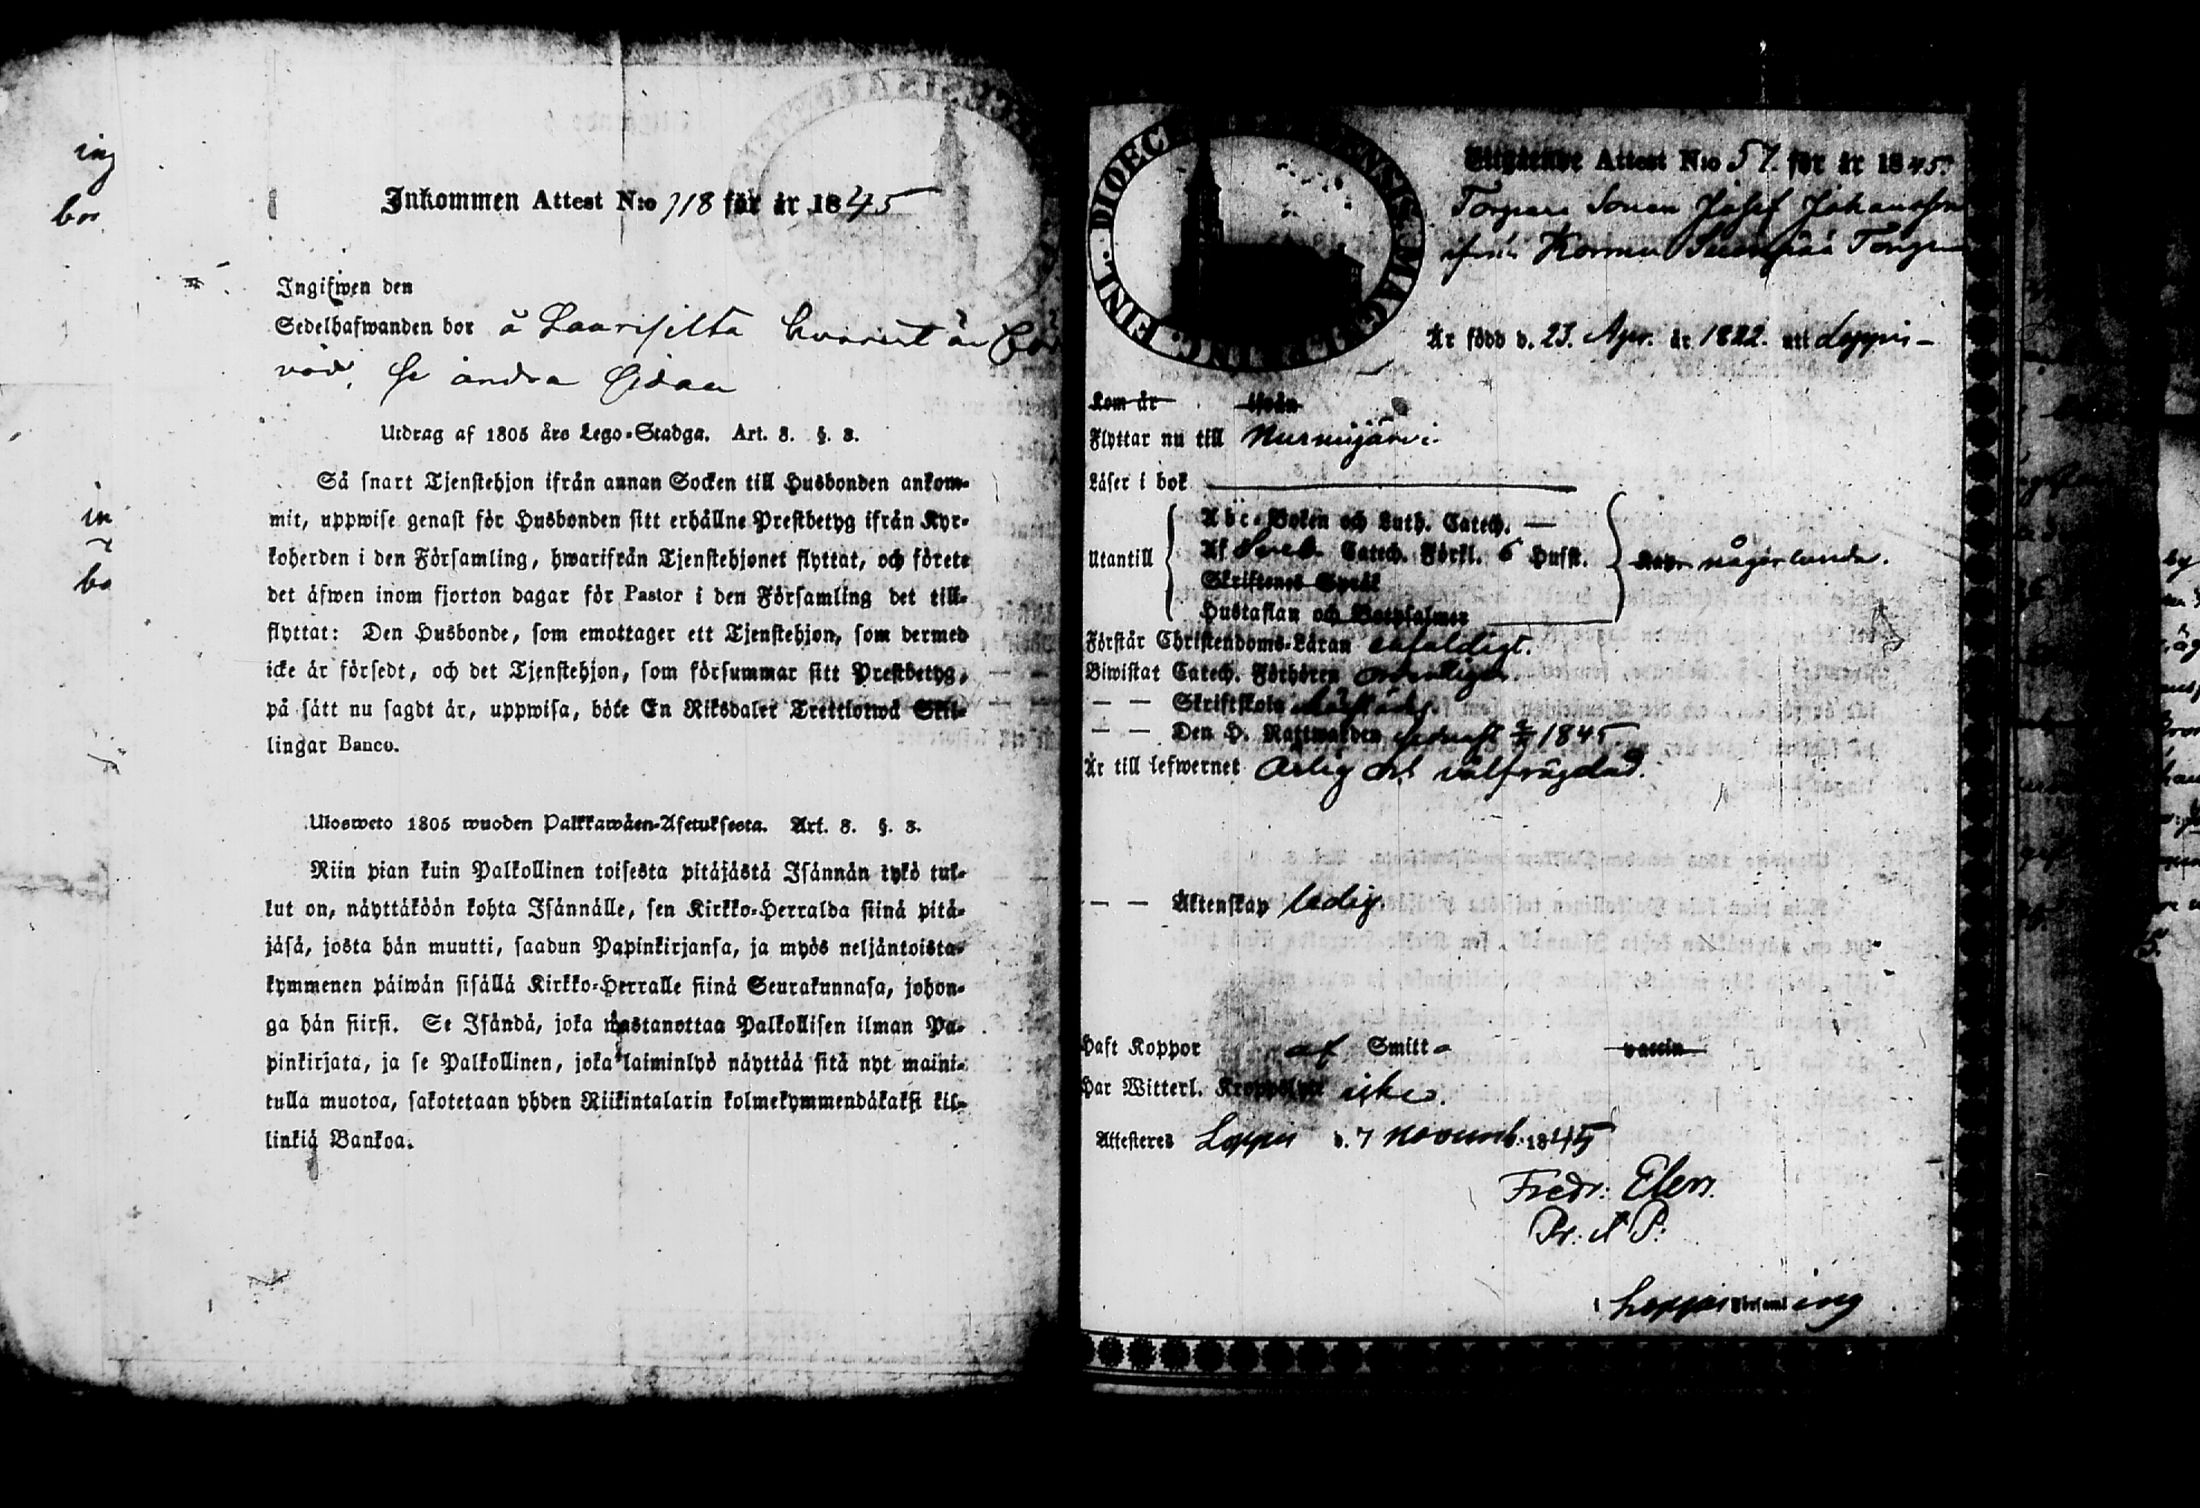 Inkommen Attest N:o 118 för år 1845
Ingifwen den
Sedelhafwanden bor å Laurisilta hvarest är
se andra sidan
Utdrag af 1805 års Lego-Stadga. Art. 8. §. 3.
Så snart Tjenstehjon ifrån annan Socken till Husbonden ankom-
mit, uppwise genast för Husbonden sitt erhållne Prestbetyg ifrån Kyr-
koherden i den Församling, hwarifrån Tjenstehjonet flyttat, och förete
det äfwen inom fjorton dagar för Pastor i den Församling det till-
flyttat: Den Husbonde, som emottager ett Tjenstehjon, som dermed
icke är försedt, och det Tjenstehjon, som försummar sitt Prestbetyg,
på sätt nu sagdt är, uppwisa, böte En Riksdaler Trettiotwå Skil-
lingar Banco.
Ulosweto 1805 wuoden Palkkawäen-Asetuksesta. Art. 8. §. 3.
Niin pian kuin Palkollinen toisesta pitäjästä Isännän tykö tul-
lut on, näyttäköön kohta Isännälle, sen Kirkko-Herralda siinä pitä-
jäsä, josta hän muutti, saadun Papinkirjansa, ja myös neljäntoista-
kymmenen päiwän sisällä Kirkko-Herralle siinä Seurakunnasa, johon-
ga hän siirsi. Se Isändä, joka wastanottaa Palkollisen ilman Pa-
pinkirjata, ja se Palkollinen, joka laiminlyö näyttää sitä nyt maini-
tulla muotoa, sakotetaan yhden Riikintalarin kolmekymmendäkaksi kil-
linkiä Bankoa.
DIOEC ENSIS MAG FINL.
Utgående Attest N:o 57. för år 1845.
Torpare Sonen Josef Johansson
ifrån Kormu Torp
Är född d. 23. Apr. år 1822. uti Loppis
Kom år ifrån
Flyttar nu till Nurmijärvi
Läser i bok
Utantill
Abc-Boken och Luth. Catech.
Af Sveb. Catech. Förkl. 6 Hufst.
Skriftenes Språk
Hustaflan och Botpsalmer
någorlunda.
Förstår Christendoms-Läran enfaldigt.
Biwistat Catech. Förhören ordentligen
— — Skriftskola
— — Den H. Nattwarden senast 1845
Är till lefwernet Ärlig och välfrägdad.
— — Äktenskap ledig.
Haft Koppor af Smitt vaccin
Har Witterl. Kroppslyte icke.
Attesteres Loppis d. 7 Novemb. 1845
Fredr: Elers.
i Loppis Församling